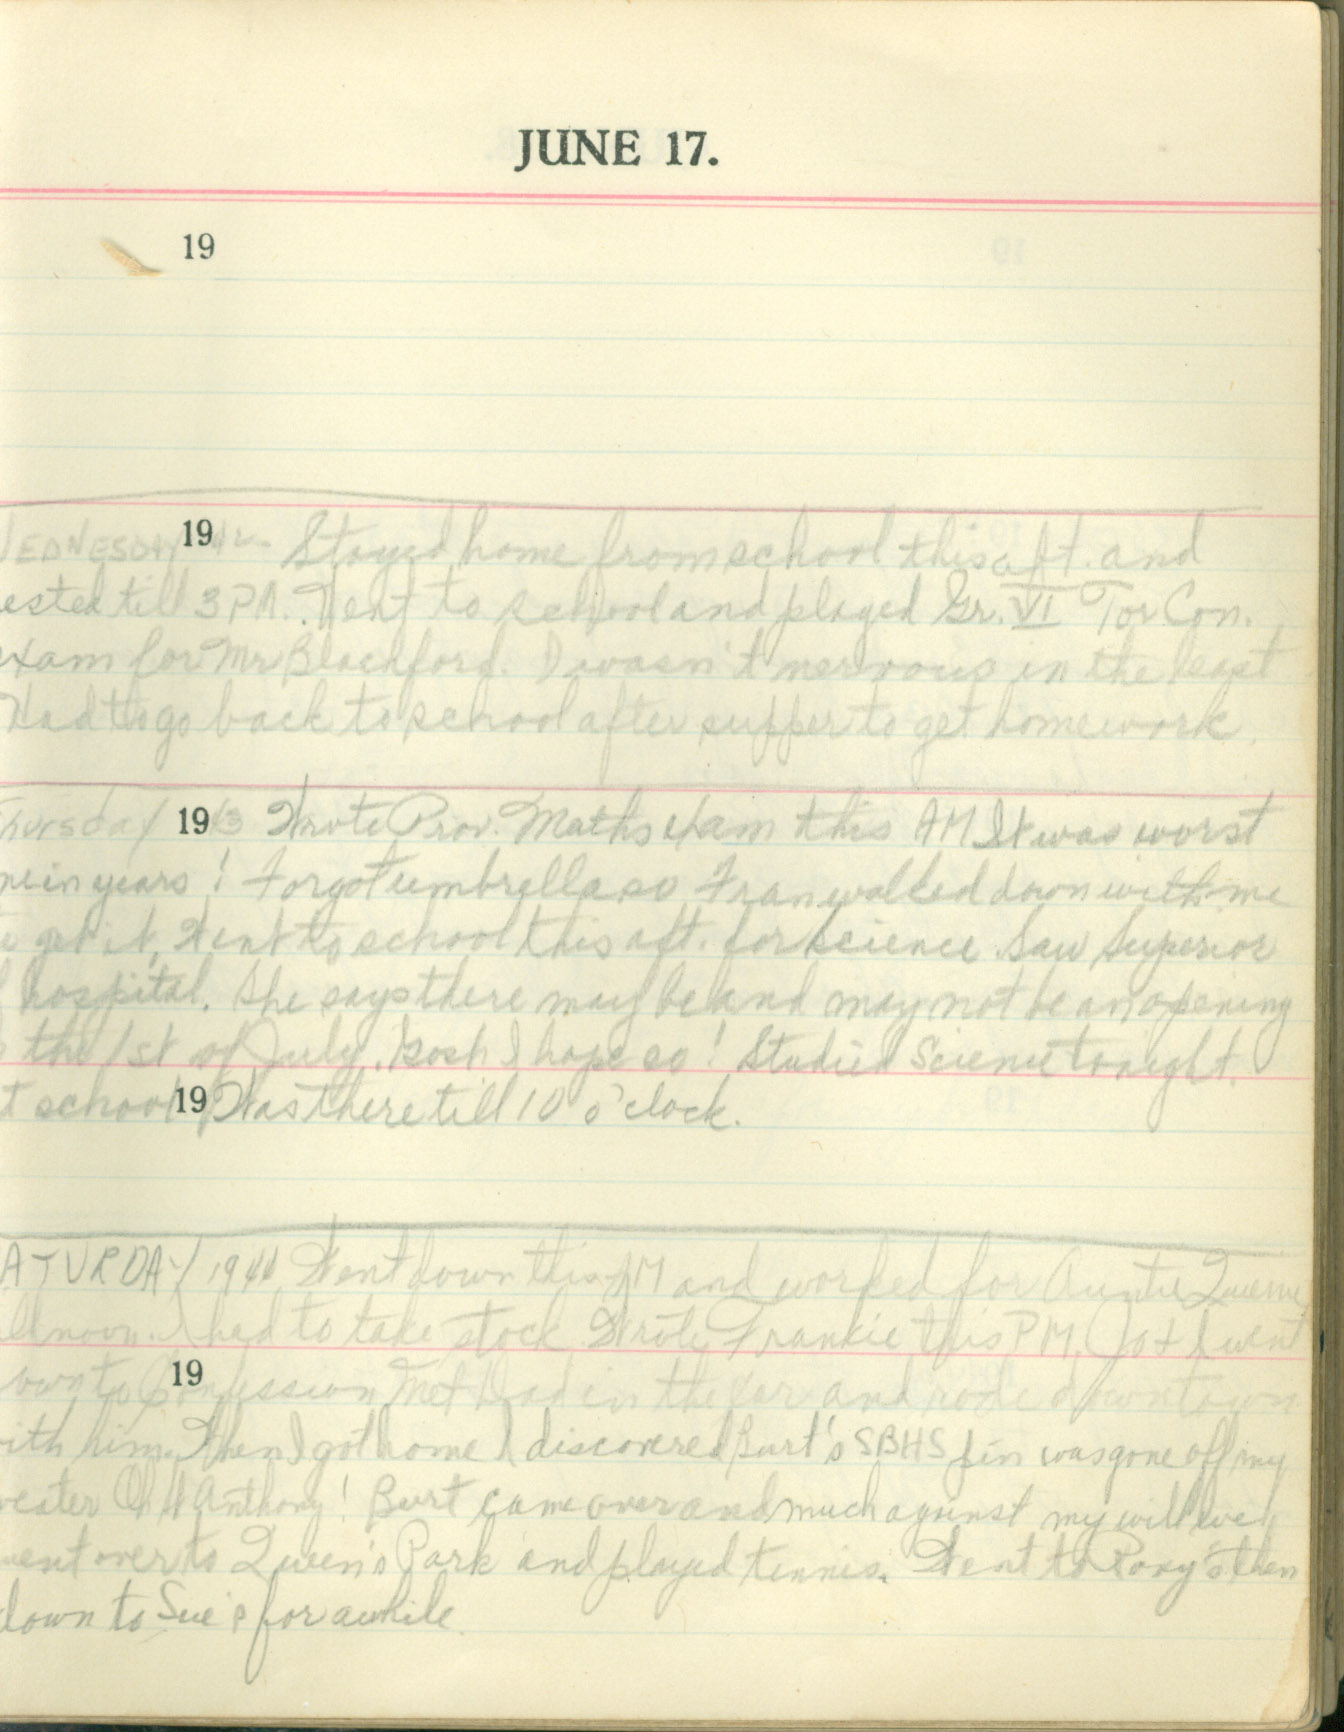 JUNE 17.
19
WEDNESDAY 1942 Stayed home from school this aft. and
ested till 3 PM. Went to school and played Gr. VI Tor. Con.
exam for Mr Blachford. I wasn't nervous in the least
Had to go back to school after supper to get homework.
Thursday 1943 Wrote Prov. Maths exam this AM It was worst
ne in years! Forgot umbrella so Fran walked down with me
to get it. Went to school this aft. for science. Saw Superior
f hospital. She says there may be and may not be an opening
the 1st of July. Gosh I hope so! Studied Science tonight.
t school 19 Was there till 10 o'clock.
ATURDAY 1944 Went down this AM and worked for Auntie Queenie
ill noon. I had to take stock. Wrote Frankie this PM. Jo & I went
own to Confession Met Dad in the car and rode downtown
19
with him. When I got home I discovered Burt's SBHS pin was gone off my
weater Oh St Anthony! Burt came over and much against my will we
went over to Queen's Park and played tennis. Went to Roxy's then
down to Sue's for awhile.